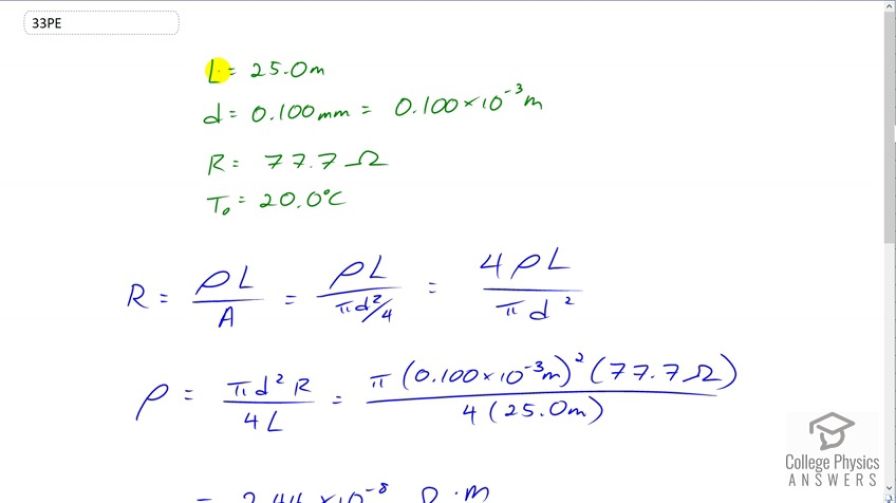 33PE
L = 25.0m
d = 0.100mm = 0.100×10⁻³m
R = 77.7 Ω
T₀ = 20.0°C
R = ρL/A = ρL/(πd²/4) = 4ρL/πd²
ρ = πd²R/4L = π(0.100×10⁻³m)²(77.7Ω)/4(25.0m)
= 2.44×10⁻⁸ Ω·m
College Physics
ANSWERS